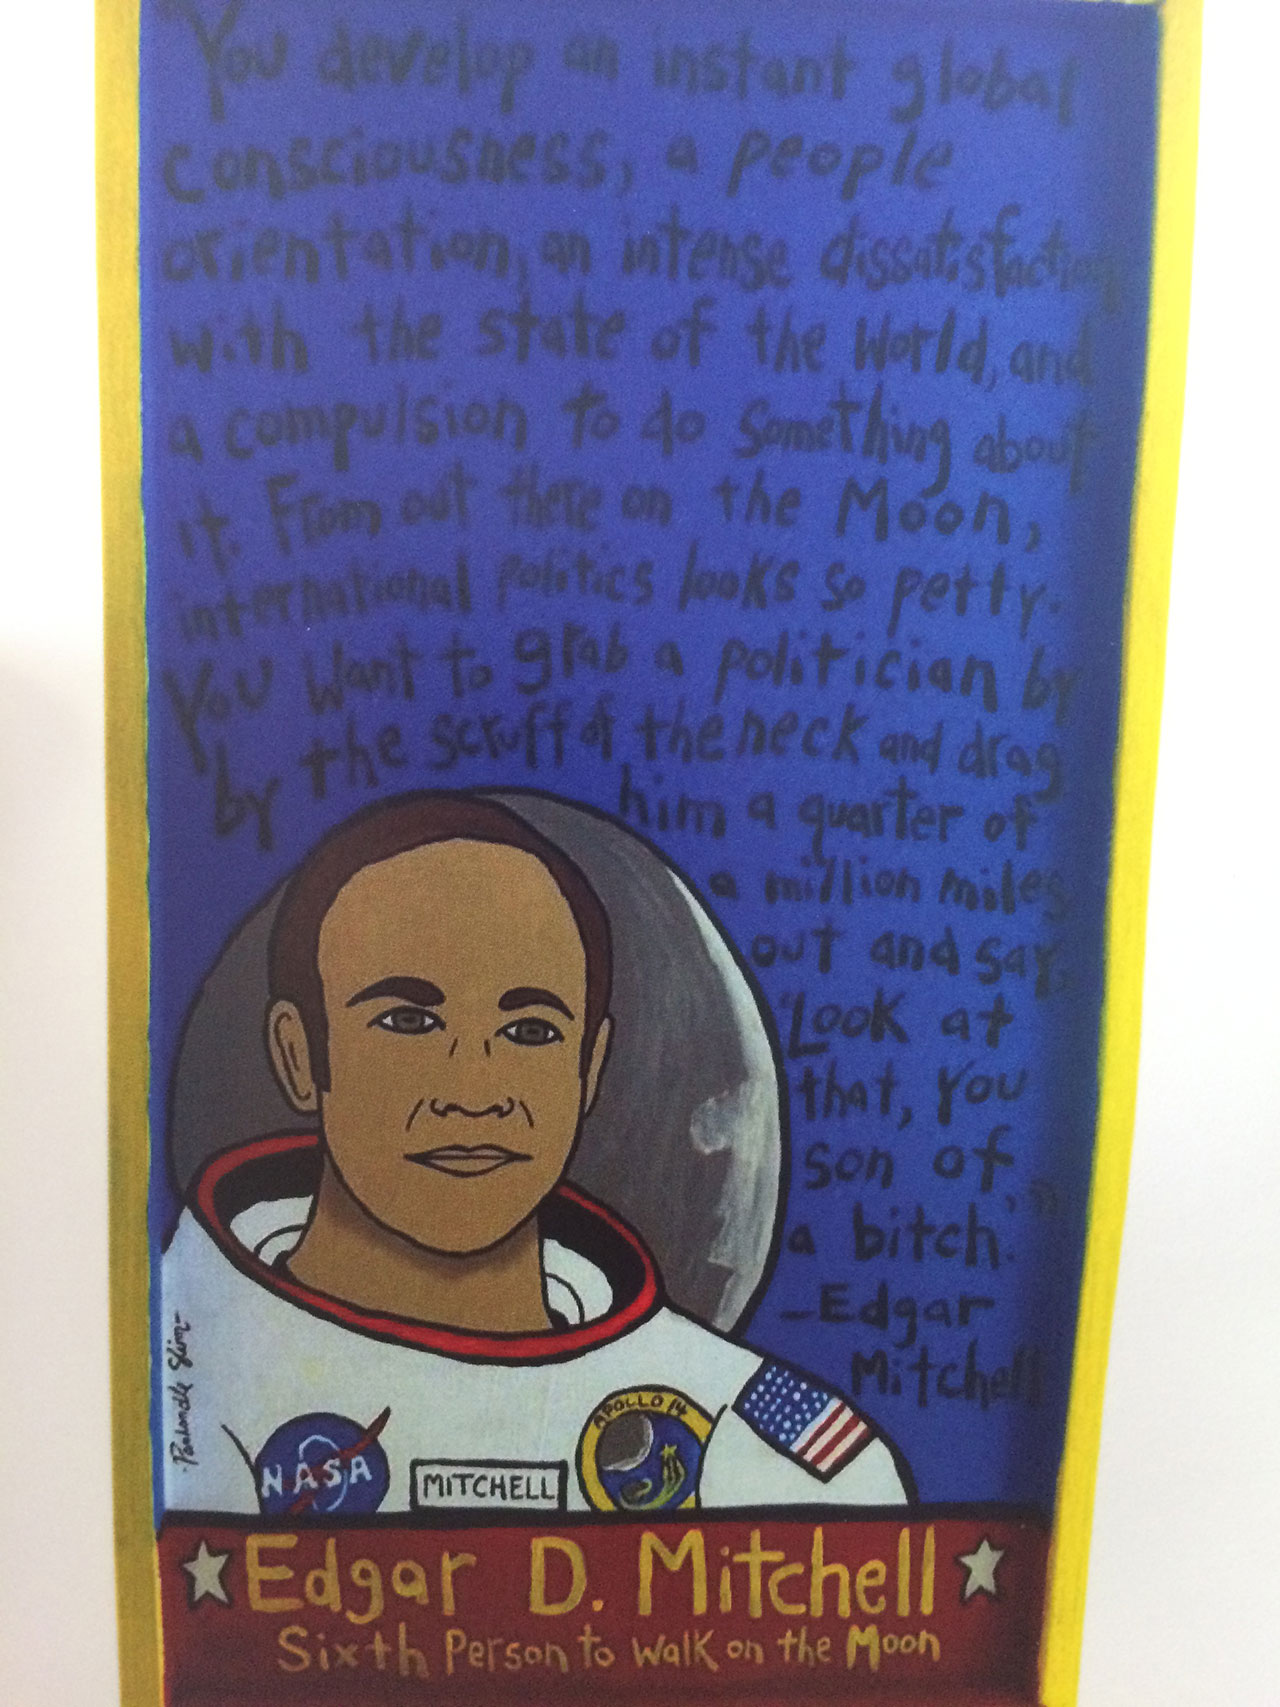 You develop an instant global
consciousness, a people
orientation, an intense dissatisfaction
with the state of the World, and
a compulsion to do something about
it. From out there on the Moon,
international politics looks so petty.
You want to grab a politician by
by the scruff of the neck and drag
him a quarter of
a million miles
out and say,
"Look at
that, you
son of,"
a bitch.
-Edgar
Mitchell
Panhandle Slim
NASA
MITCHELL
APOLLO 14
Edgar D. Mitchell
Sixth Person to Walk on the Moon